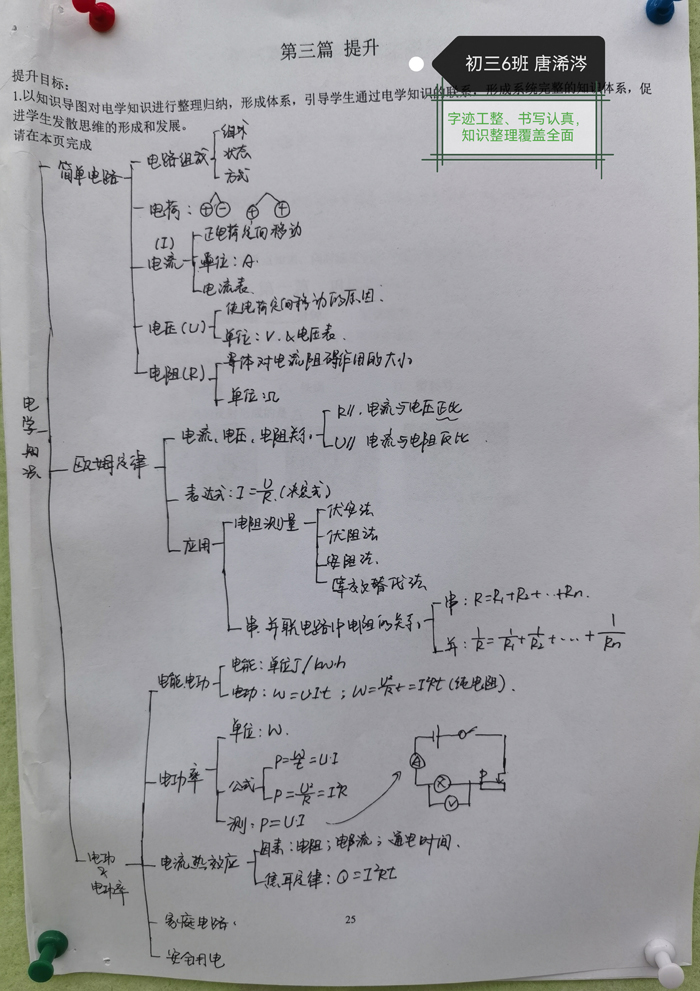 第三篇 提升
初三6班 唐浠涔
提升目标：
1.以知识导图对电学知识进行整理归纳，形成体系，引导学生通过电学知识的联系，形成系统完整的知识体系，促
进学生发散思维的形成和发展。
请在本页完成
字迹工整、书写认真，
知识整理覆盖全面
电学知识
简单电路
电路组成
组成
状态
方式
电荷：⊕⊖ ⊕ ⊕
(I)
电流
正电荷定向移动
单位：A.
电流表.
电压(U)
使电荷定向移动的原因.
单位：V. &电压表.
电阻(R)
导体对电流阻碍作用的大小
单位：Ω
欧姆定律
电流、电压、电阻关系
R//. 电流与电压正比
U// 电流与电阻反比.
表达式：I=U/R.(决定式)
应用
电阻测量
伏安法
伏阻法
安阻法.
等效替代法
串、并联电路中电阻的关系
串：R=R1+R2+…+Rn.
并：1/R=1/R1+1/R2+…+1/Rn
电功&电功率
电能、电功
电能：单位J/kwh
电功：W=UIt；W=U²/Rt=I²Rt(纯电阻).
电功率
单位：W.
公式
P=W/t=U·I
P=U²/R=I²R
测：P=U·I
A
V
P
电流热效应
因素：电阻；电流；通电时间.
焦耳定律：Q=I²Rt
家庭电路.
安全用电
25